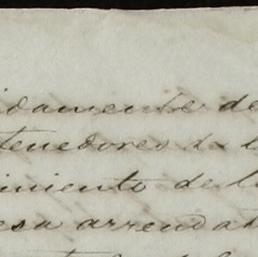 idamente de
tenedores de l
imiento de l
esa arrendat